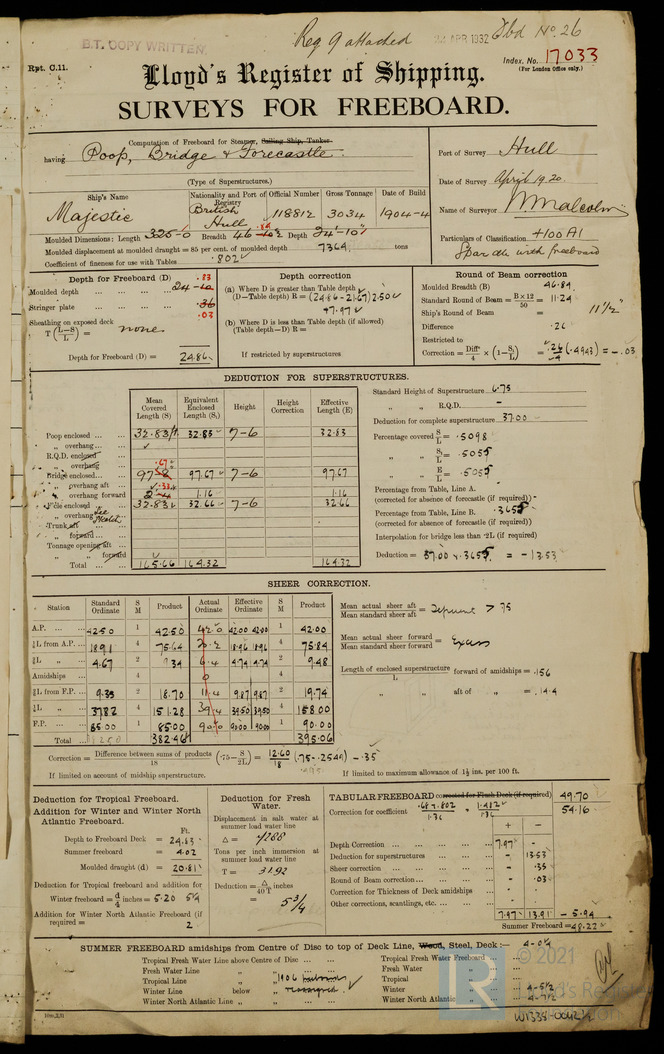 B.T. COPY WRITTEN.
Reg 9 attached
APR 1932
No. 26
Rpt. C.11.
Index. No. 17033
(For London Office only.)
Lloyd's Register of Shipping.
SURVEYS FOR FREEBOARD.
Computation of Freeboard for Steamer, Sailing Ship, Tanker
having Poop, Bridge & Forecastle.
(Type of Superstructures.)
Port of Survey Hull
Date of Survey April 1920.
Name of Surveyor Malcolm
Particulars of Classification +100A1
Spar dk with freeboard
Ship's Name
Majestic
Nationality and Port of Registry
British
Hull
Official Number
118812
Gross Tonnage
3034
Date of Build
1904-4
Moulded Dimensions: Length 325-0 Breadth 46-10½ Depth 24-10½
.89
Moulded displacement at moulded draught = 85 per cent. of moulded depth 7364 tons
Coefficient of fineness for use with Tables .802
Depth for Freeboard (D)
Moulded depth 24-10
.83
Stringer plate .36
.03
Sheathing on exposed deck
T (L-S/L) = none
Depth for Freeboard (D) = 24.86
Depth correction
(a) Where D is greater than Table depth
(D—Table depth) R = (24.86-21.67) 2.50
+7.97
(b) Where D is less than Table depth (if allowed)
(Table depth—D) R =
If restricted by superstructures
Round of Beam correction
Moulded Breadth (B) 46.89
Standard Round of Beam = B×12/50 = 11.24
Ship's Round of Beam = 11½"
Difference .26
Restricted to
Correction = Diff/4 × (1 - S₁/L) = .26/4 (.4943) = -.03
DEDUCTION FOR SUPERSTRUCTURES.
Mean Covered Length (S)
Equivalent Enclosed Length (S₁)
Height
Height Correction
Effective Length (E)
Poop enclosed 32.83 32.83 7-6 32.83
„ overhang
R.Q.D. enclosed
„ overhang
Bridge enclosed 97.67 7-6 97.67
.67
„ overhang aft
„ overhang forward 2-4 1.16 1.16
.33
F'cle enclosed 32.83 32.66 7-6 32.66
„ overhang See Sketch
Trunk aft
„ forward
Tonnage opening aft
„ forward
Total 165.66 164.32 164.32
Standard Height of Superstructure 6.75
„ „ R.Q.D. -
Deduction for complete superstructure 37.00
Percentage covered S/L = .5098
„ „ S₁/L = .5055
„ „ E/L = .5055
Percentage from Table, Line A.
(corrected for absence of forecastle (if required)) -
Percentage from Table, Line B. .3655
(corrected for absence of forecastle (if required))
Interpolation for bridge less than ·2L (if required)
Deduction = 37.00 × .3655 = -13.53
SHEER CORRECTION.
Station
Standard Ordinate
S M
Product
Actual Ordinate
Effective Ordinate
S M
Product
A.P. 42.50 1 42.50 42.0 42.00 42.00 1 42.00
⅙L from A.P. 18.91 4 75.64 20.2 18.96 18.96 4 75.84
⅓L „ 4.67 2 9.34 6.4 4.74 4.74 2 9.48
Amidships 4 0 4
⅓L from F.P. 9.35 2 18.70 11.4 9.87 9.87 2 19.74
⅙L „ 37.82 4 151.28 39.4 39.50 39.50 4 158.00
F.P. 85.00 1 85.00 90.0 90.00 90.00 1 90.00
Total 382.46 395.06
Mean actual sheer aft / Mean standard sheer aft = Deficient > 75
Mean actual sheer forward / Mean standard sheer forward = Excess
Length of enclosed superstructure / L forward of amidships = .156
„ „ aft of „ = .144
Correction = Difference between sums of products / 18 (·75 - S/2L) = 12.60/18 (.75-.2549) = -.35
If limited on account of midship superstructure. .495
If limited to maximum allowance of 1½ ins. per 100 ft.
Deduction for Tropical Freeboard.
Addition for Winter and Winter North Atlantic Freeboard.
Ft.
Depth to Freeboard Deck = 24.83
Summer freeboard = 4.02
Moulded draught (d) = 20.81
Deduction for Tropical freeboard and addition for
Winter freeboard = d/4 inches = 5.20 5¼
Addition for Winter North Atlantic Freeboard (if
required = 2
Deduction for Fresh Water.
Displacement in salt water at
summer load water line
Δ = 7288
Tons per inch immersion at
summer load water line
T = 31.92
Deduction = Δ/40T inches
= 5¾
TABULAR FREEBOARD corrected for Flush Deck (if required) 49.70
Correction for coefficient .68+.802/1.36 = 1.482/1.36 54.16
+ −
Depth Correction 7.97 -
Deduction for superstructures - 13.53
Sheer correction - .35
Round of Beam correction - .03
Correction for Thickness of Deck amidships - -
Other corrections, scantlings, etc. - -
7.97 13.91 - 5.94
Summer Freeboard = 48.22
SUMMER FREEBOARD amidships from Centre of Disc to top of Deck Line, Wood, Steel, Deck:— 4-0¼
Tropical Fresh Water Line above Centre of Disc
Fresh Water Line „ „
Tropical Line „ „ 1906
Winter Line below „
Winter North Atlantic Line „ „
Tropical Fresh Water Freeboard
Fresh Water „
Tropical „
Winter „ 4-5½
Winter North Atlantic „ 4-7½
© 2021
LR
Lloyd's Register
Foundation
W1338-0042½